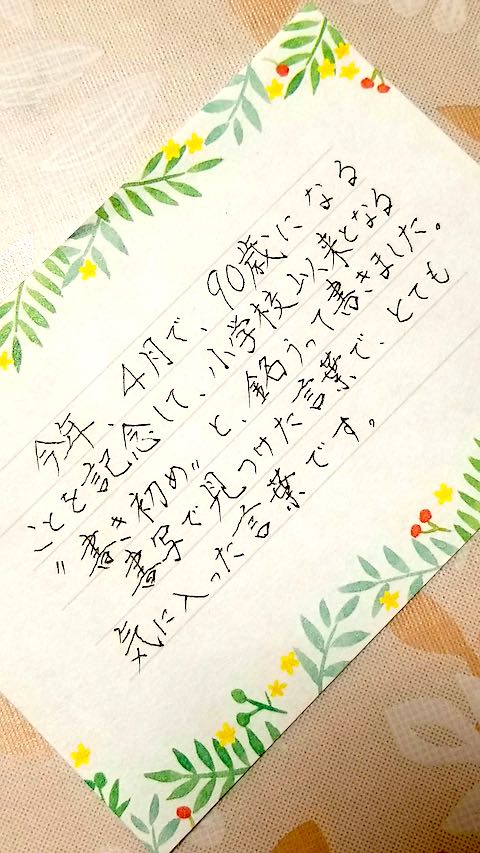 今年、4月で、90歳になる
ことを記念して、小学校以来となる
"書き初め"と、銘うって書きました。
書写で見つけた言葉で、とても
気に入った言葉です。